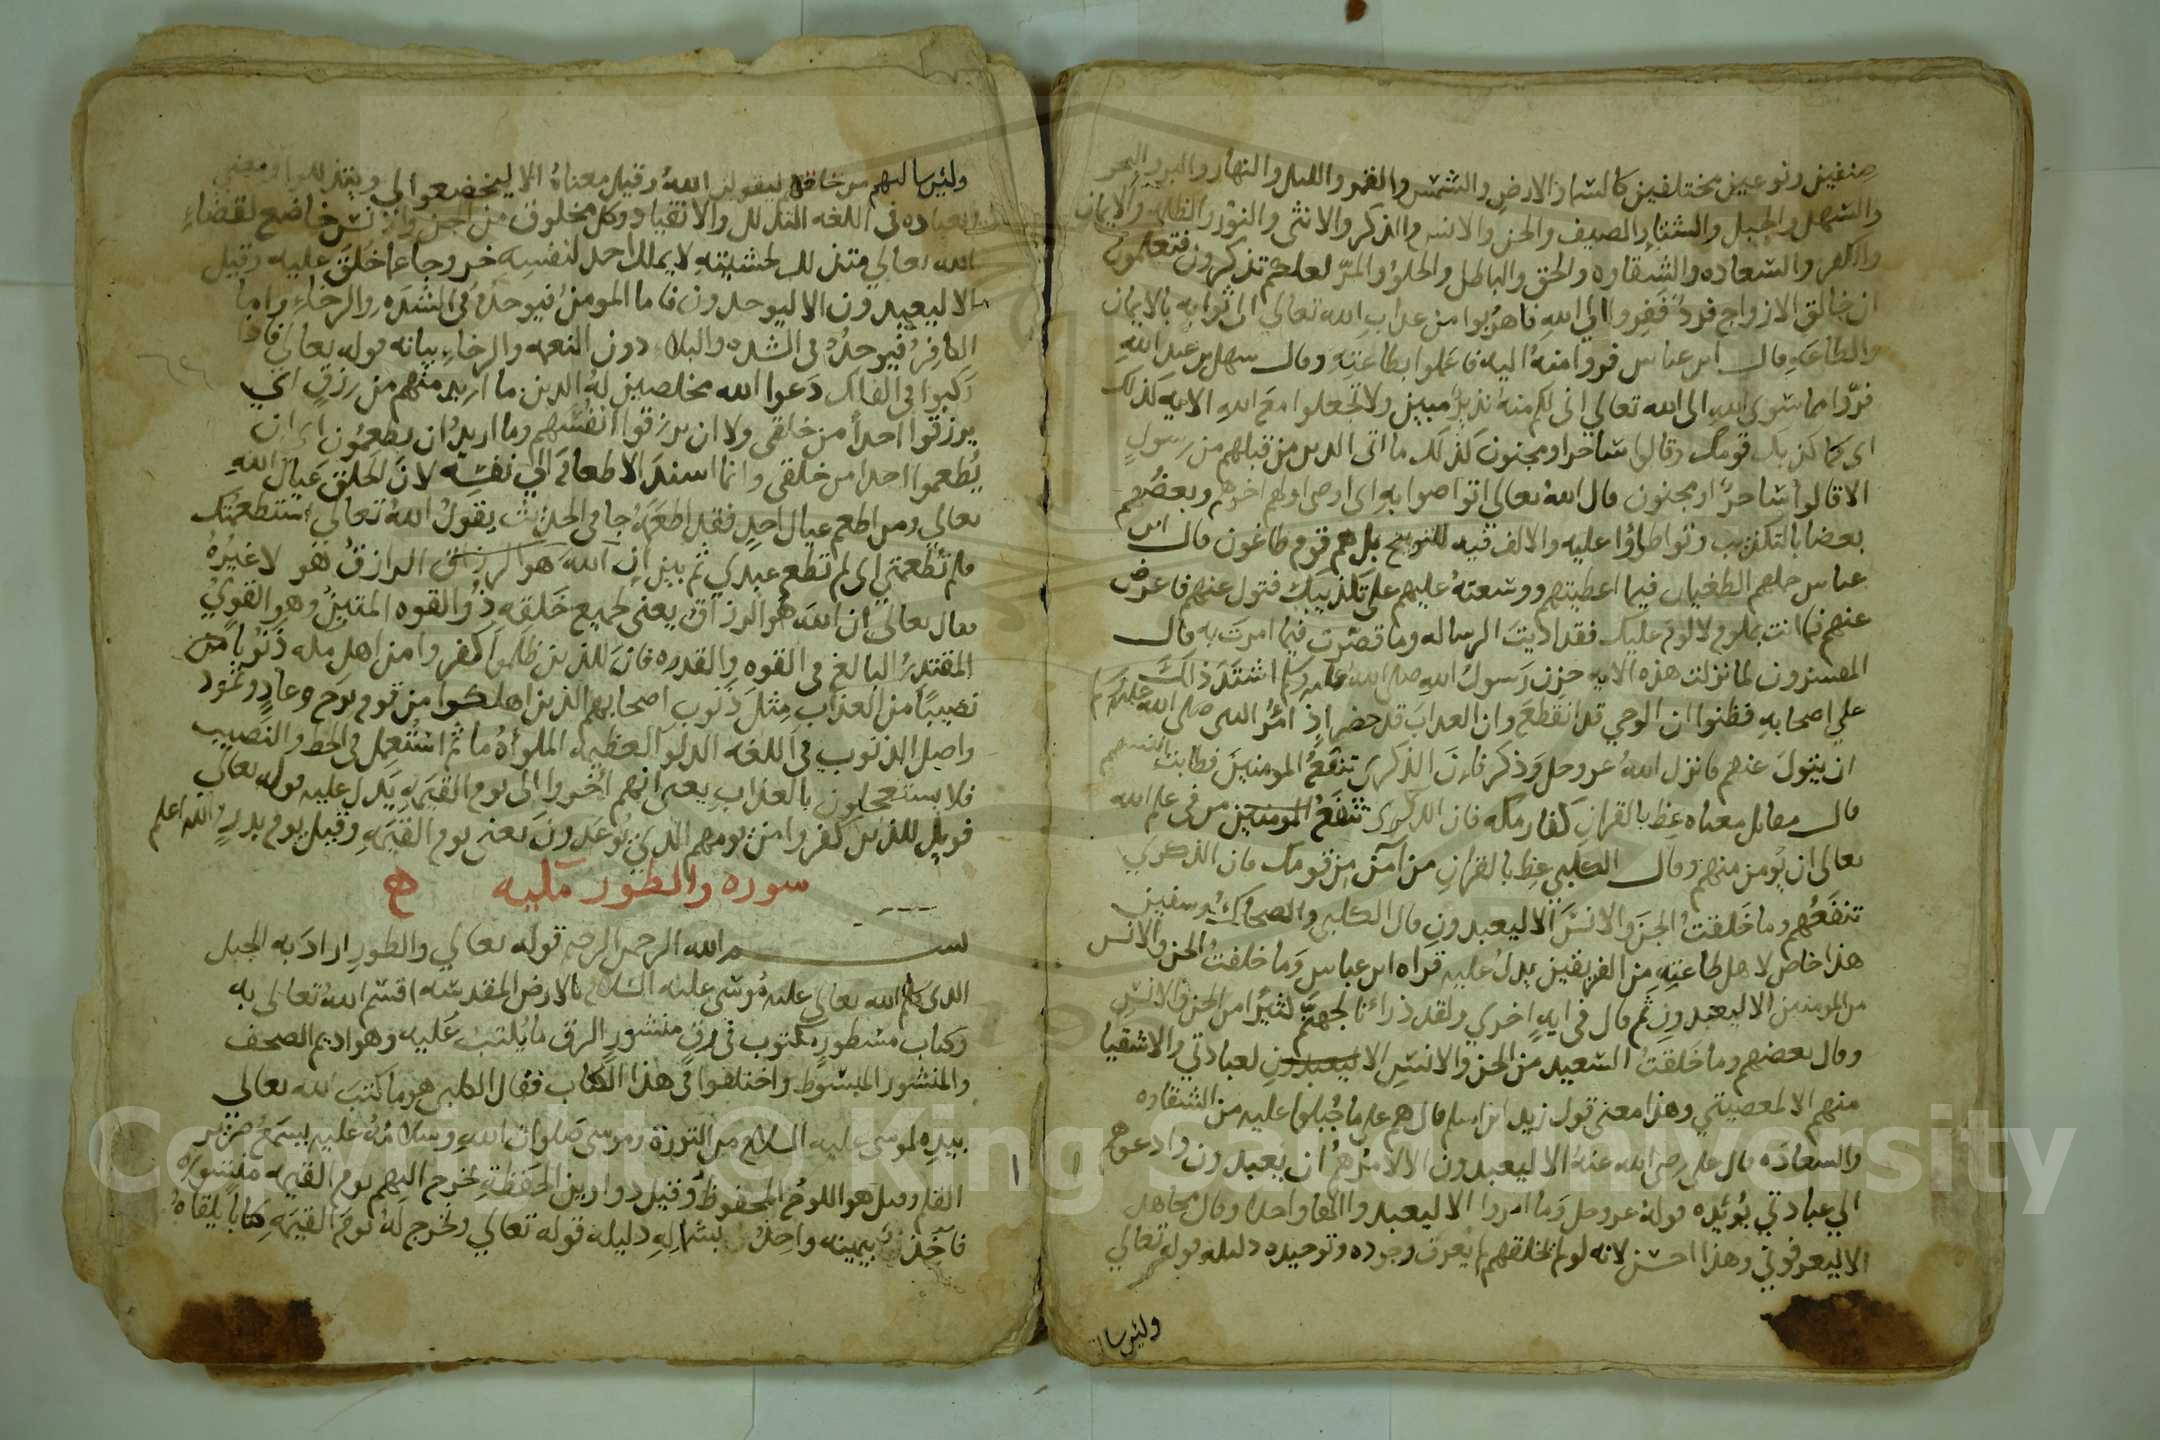 صنفين ونوعين مختلفين كالسما والارض والشمس والقمر والليل والنهار والبر والبحر
والسهل والجبل والشتا والصيف والجن والانس والذكر والانثى والنور والظلمه والايمان
والكفر والسعاده والشقاوه والحق والباطل والحلو والمر لعلكم تذكرون فتعلمون
ان خالق الازواج فرد ففروا الى الله فاهربوا من عذاب الله تعالي الى ثوابه بالايمان
والطاعه قال ابن عباس فروا منه اليه فاعملوا بطاعته وقال سهل بن عبد الله
فروا مما سوى الله الى الله تعالي اني لكم منه نذير مبين ولا تجعلوا مع الله الايه كذلك
اى كما كذبك قومك وقالوا ساحر او مجنون كذلك ما اتى الذين من قبلهم من رسول
الا قالوا ساحر او مجنون قال الله تعالى اتواصوا به اى اوصى اولهم اخرهم وبعضهم
بعضا بالتكذيب وتواطؤا عليه والالف فيه للتوبيخ بل هم قوم طاغون قال ابن
عباس حملهم الطغيان فيما اعطيتهم ووسعته عليهم على تكذيبك فتول عنهم فاعرض
عنهم فما انت بملوم لا لوم عليك فقد اديت الرساله وما قصرت فيما امرت به قال
المفسرون لما نزلت هذه الايه حزن رسول الله صلى الله عليه وسلم اشتد ذلك
علي اصحابه فظنوا ان الوحي قد انقطع وان العذاب قد حضر اذ امر النبى صلى الله عليه وسلم
ان يتول عنهم فانزل الله عز وجل وذكر فان الذكرى تنفع المومنين فطابت انفسهم
قال مقاتل معناه عظ بالقران كفار مكه فان الذكرى تنفع المومنين من فى علم الله
تعالى ان يومن منهم وقال الكلبي عظ بالقران من آمن من قومك فان الذكرى
تنفعهم وما خلقت الجن والانس الا ليعبدون قال الكلبي والضحاك وسفين
هذا خاص لاهل طاعته من الفريقين يدل عليه قراه ابن عباس وما خلقت الجن والانس
من المومنين الا ليعبدون ثم قال فى ايه اخري ولقد ذرانا لجهنم كثيرا من الجن والانس
وقال بعضهم وما خلقت السعيد من الجن والانس الا ليعبدون لعبادتي والاشقيا
منهم الا لمعصيتي وهذا معنى قول زيد ابن اسلم قال هم على ما جبلوا عليه من الشقاوه
والسعاده قال على رضى الله عنه الا ليعبدون الا لامرهم ان يعبدون وادعوهم
الي عبادتي يؤيده قوله عز وجل وما امروا الا ليعبدوا الها واحدا وقال مجاهد
الا ليعرفونى وهذا احسن لانه لو لم يخلقهم لم يعرف وجوده وتوحيده دليله قوله تعالي
ولئن سا
ولئن سالتهم من خلقهم ليقولن الله وقيل معناه الا ليخضعوا لي ويتذللوا ومعنى
العباده فى اللغه التذلل والانقياد وكل مخلوق من الجن والانس خاضع لقضاء
الله تعالي متذلل لمشيته لا يملك احد لنفسه خروجا عما خلق عليه وقيل
الا ليعبدون الا ليوحدون فاما المومن فيوحده فى الشده والرخاء واما
الكافر فيوحده فى الشده والبلاء دون النعمه والرخاء بيانه قوله تعالي فاذا
ركبوا فى الفلك دعوا الله مخلصين له الدين ما اريد منهم من رزق اي
يرزقوا احدا من خلقى ولا ان يرزقوا انفسهم وما اريد ان يطعمون اى ان
يطعموا احدا من خلقى وانما اسند الاطعام الي نفسه لان الخلق عيال الله
تعالي ومن اطعم عيال احد فقد اطعمه جا فى الحديث يقول الله تعالي استطعمتك
فلم تطعمني اى لم تطعم عبدي ثم بين ان الله هو الرزاق الرازق هو لا غيره
فقال تعالى ان الله هو الرزاق يعني لجميع خلقه ذو القوه المتين وهو القوي
المقتدر البالغ فى القوه والقدره فان للذين ظلموا كفروا من اهل مكه ذنوبا من
نصيبا من العذاب مثل ذنوب اصحابهم الذين اهلكوا من قوم نوح وعاد وثمود
واصل الذنوب فى اللغه الدلو العظيمه المملوأة ما ثم استعمل فى الحظ والنصيب
فلا يستعجلون بالعذاب يعنى انهم اخروا الى يوم القيمه يدل عليه قوله تعالي
فويل للذين كفروا من يومهم الذى يوعدون يعنى يوم القيمه وقيل يوم بدر والله اعلم
سوره والطور مكيه
بسم الله الرحمن الرحيم قوله تعالي والطور اراد به الجبل
الذى كلم الله تعالى عليه موسى عليه السلام بالارض المقدسه اقسم الله تعالى به
وكتاب مسطور مكتوب في رق منشور الرق ما يكتب عليه وهو اديم الصحف
والمنشور المبسوط واختلفوا فى هذا الكتاب فقال الكلبي هو ما كتب الله تعالي
بيده لموسى عليه السلام من التورة وموسى صلوات الله وسلامه عليه يسمع صرير
القلم وقيل هو اللوح المحفوظ وقيل دواوين الحفظة تخرج اليهم يوم القيمه منشوره
فآخذ بيمينه واخذ بشماله دليله قوله تعالي ونخرج له يوم القيمه كتابا يلقاه
Copyright © King Saud University